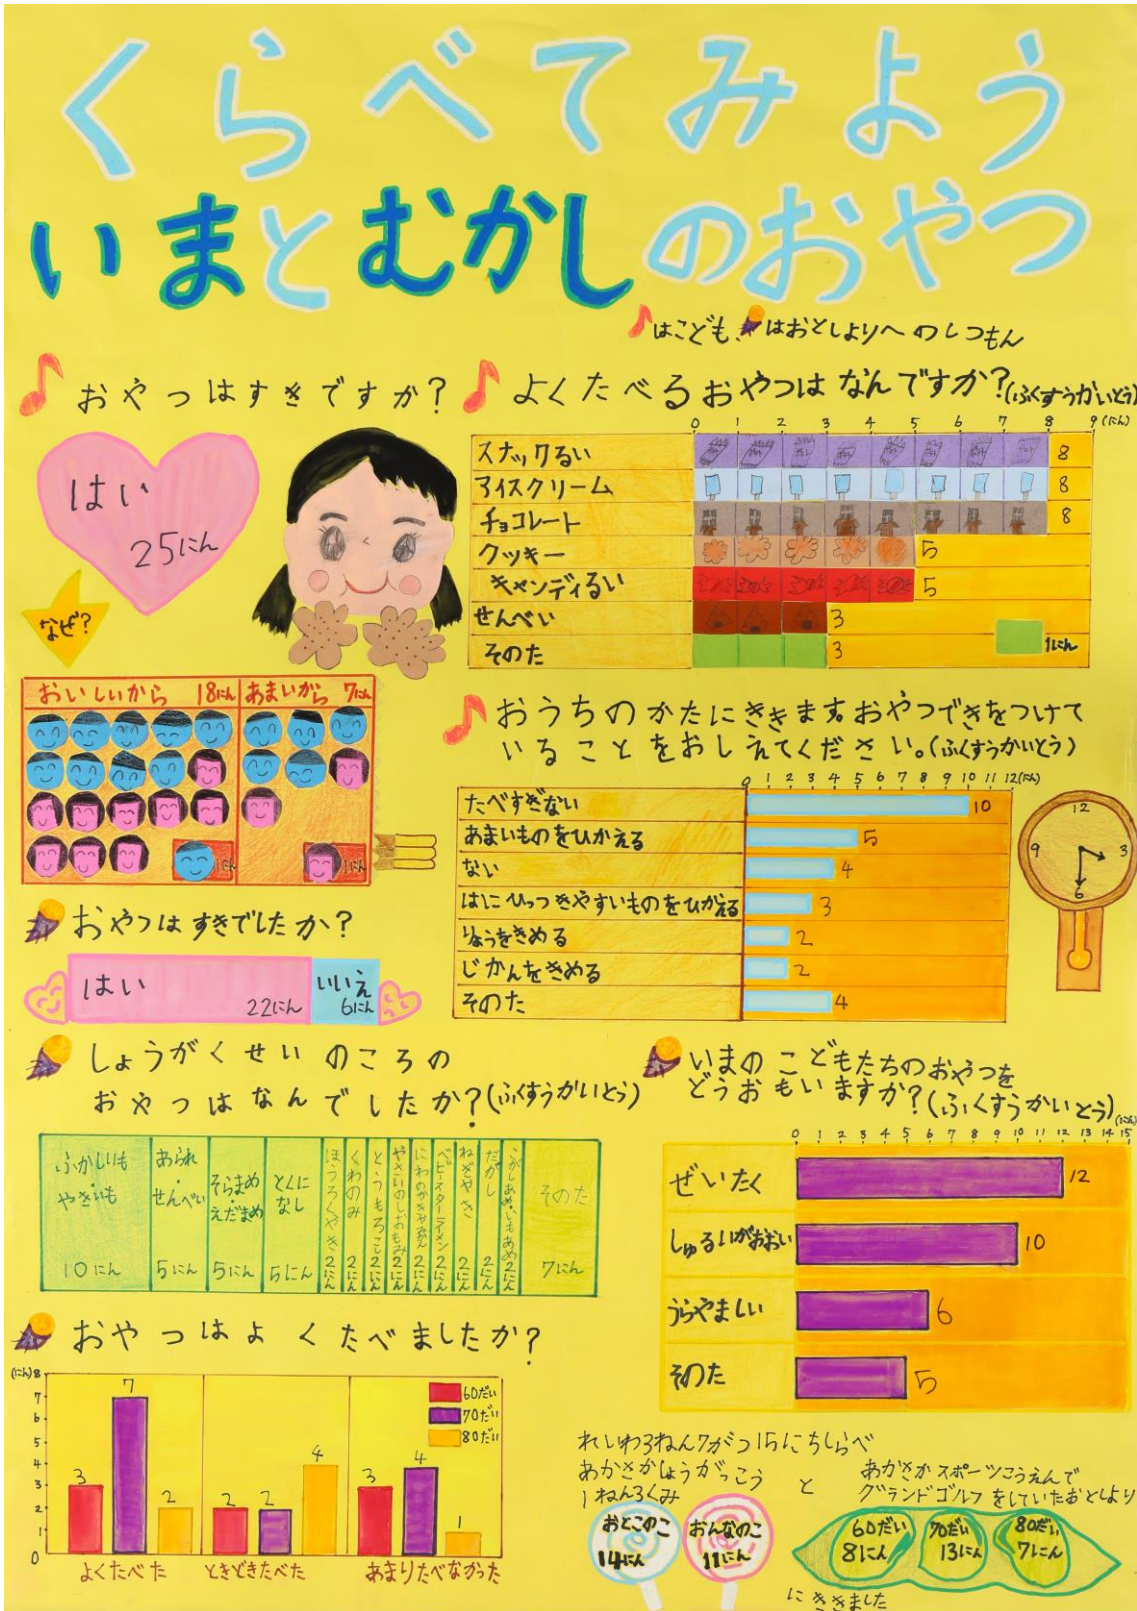 くらべてみよう
いまとむかしのおやつ
♪はこども、はおとしよりへのしつもん
おやつはすきですか?
はい
25にん
なぜ?
おいしいから 18にん
あまいから 7にん
1にん
1にん
よくたべるおやつはなんですか?(ふくすうかいとう)
0 1 2 3 4 5 6 7 8 9 (にん)
スナックるい 8
アイスクリーム 8
チョコレート 8
クッキー 5
キャンディるい 5
せんべい 3
そのた 3
1にん
おうちのかたにききます。おやつできをつけて
いることをおしえてください。(ふくすうかいとう)
0 1 2 3 4 5 6 7 8 9 10 11 12(にん)
たべすぎない 10
あまいものをひかえる 5
ない 4
はにひっつきやすいものをひかえる 3
りょうをきめる 2
じかんをきめる 2
そのた 4
12
3
6
9
おやつはすきでしたか?
はい 22にん
いいえ 6にん
しょうがくせいのころの
おやつはなんでしたか?(ふくすうかいとう)
ふかしいも・やきいも 10にん
あられ・せんべい 5にん
そらまめ・えだまめ 5にん
とくになし 5にん
ほうろくやき 2にん
くわのみ 2にん
とうもろこし 2にん
やさいのしおもみ 2にん
にわのかきやみかん 2にん
ベビースターラーメン 2にん
ねぎやき 2にん
だがし 2にん
こがしあめ・いもあめ 2にん
そのた 7にん
いまのこどもたちのおやつを
どうおもいますか?(ふくすうかいとう)
(にん)
0 1 2 3 4 5 6 7 8 9 10 11 12 13 14 15
ぜいたく 12
しゅるいがおおい 10
うらやましい 6
そのた 5
おやつはよくたべましたか?
(にん)
8
7
6
5
4
3
2
1
0
60だい
70だい
80だい
3 7 2
2 2 4
3 4 1
よくたべた
ときどきたべた
あまりたべなかった
れいわ3ねん7がつ15にちしらべ
あかさかしょうがっこう
1ねん3くみ
おとこのこ
14にん
おんなのこ
11にん
と
あかさかスポーツこうえんで
グランドゴルフをしていたおとしより
60だい
8にん
70だい
13にん
80だい
7にん
にききました